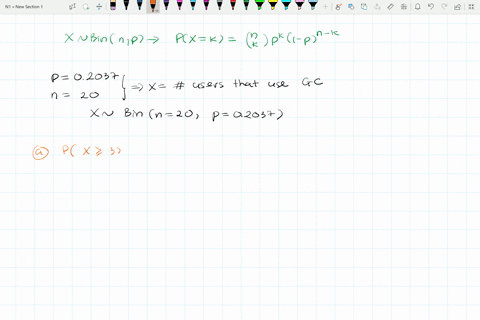 N1 » New Section 1
X ~ Bin(n,p) → P(X=k) = (n k) p^k (1-p)^{n-k}
p = 0.2037
n = 20 } ⇒ X = # users that use GC
X ~ Bin (n=20, p=0.2037)
(a) P( X ≥ 3)